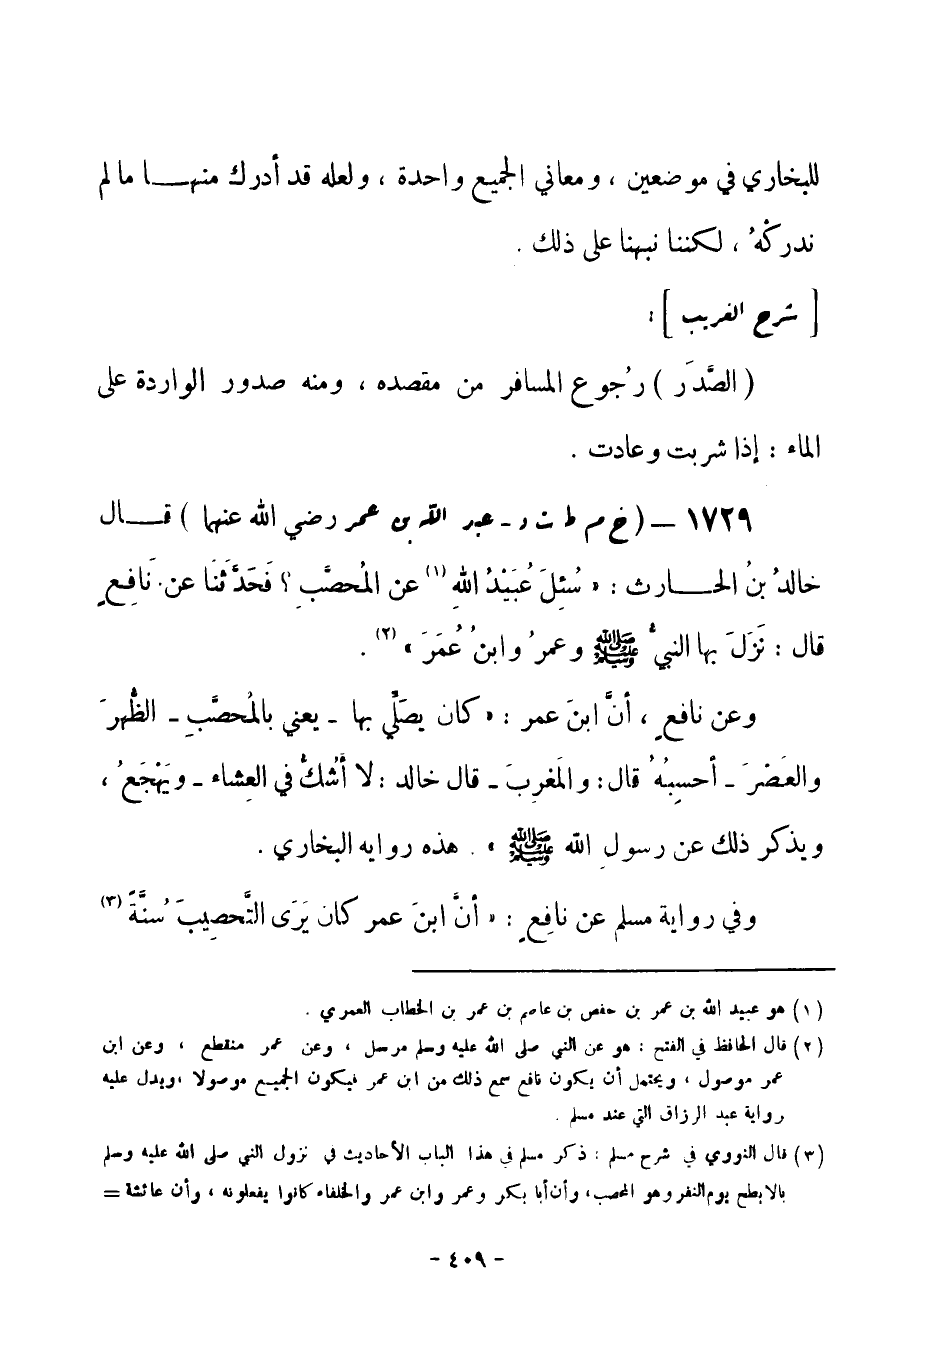 للبخاري في موضعين ، ومعاني الجميع واحدة ، ولعله قد أدرك منهـــا مالم
ندركْهُ ، لكننا نبهنا على ذلك .
[ شرح الغريب ] :
( الصَّدَر ) رُجوع المسافر من مقصده ، ومنه صدور الواردة على
الماء : إذا شربت وعادت .
١٧٢٩ – ( خ م ط ت د ـ عبد الله بن عمر رضي الله عنهما ) قـــال
خالدُ بنُ الحـــارث : « سُئِلَ عُبَيْدُ اللهِ (١) عن المُحصَّبِ ؟ فَحَدَّثَنَا عن نَافِعٍ
قال : نَزَلَ بها النبيُّ ﷺ وعمرُ وابنُ عُمَرَ » (٢) .
وعن نافعٍ ، أنَّ ابنَ عمر : « كان يصَلِّي بها ـ يعني بالمُحصَّبِ ـ الظُّهرَ
والعَصْرَ ـ أحسِبُهُ قال : والمَغرِبَ ـ قال خالد : لا أَشُكُّ في العِشاء ـ ويَهْجَعُ ،
ويذكر ذلك عن رسولِ الله ﷺ » . هذه روايه البخاري .
وفي رواية مسلم عن نافِعٍ : « أنَّ ابنَ عمر كان يَرَى التَّحصِيبَ سُنَّةً (٣)
(١) هو عبيد الله بن عمر بن حفص بن عاصم بن عمر بن الخطاب العمري .
(٢) قال الحافظ في الفتح : هو عن النبي صلى الله عليه وسلم مرسل ، وعن عمر منقطع ، وعن ابن
عمر موصول ، ويحتمل أن يكون نافع سمع ذلك من ابن عمر فيكون الجميع موصولا ،ويدل عليه
رواية عبد الرزاق التي عند مسلم .
(٣) قال النووي في شرح مسلم : ذكر مسلم في هذا الباب الأحاديث في نزول النبي صلى الله عليه وسلم
بالابطح يوم النفر وهو المحصب، وأن أبا بكر وعمر وابن عمر والخلفاء كانوا يفعلونه ، وأن عائشة =
- ٤٠٩ -